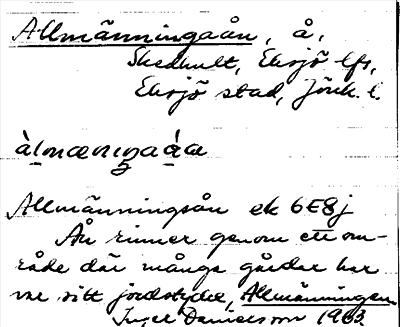 Allmänningaån, å,
Skedhult, Eksjö lfs,
Eksjö stad, Jönk. l.
Allmänningsån ek 6E8j
Ån rinner genom ett om-
råde där många gårdar har
var sitt jordstycke, Allmänningen
Inger Danielsson 1963